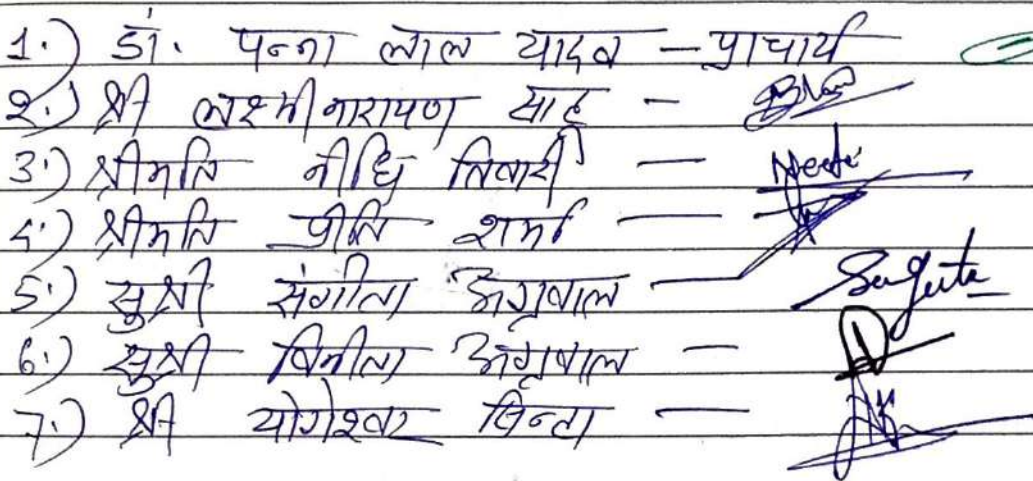 1.) डॉ. पन्ना लाल यादव – प्राचार्य
2.) श्री लक्ष्मीनारायण साहू –
3.) श्रीमति नीधि तिवारी – Neeta
4.) श्रीमति प्रीति शर्मा –
5.) सुश्री संगीता अग्रवाल – Sangeeta
6.) सुश्री विनीता अग्रवाल –
7.) श्री योगेश्वर